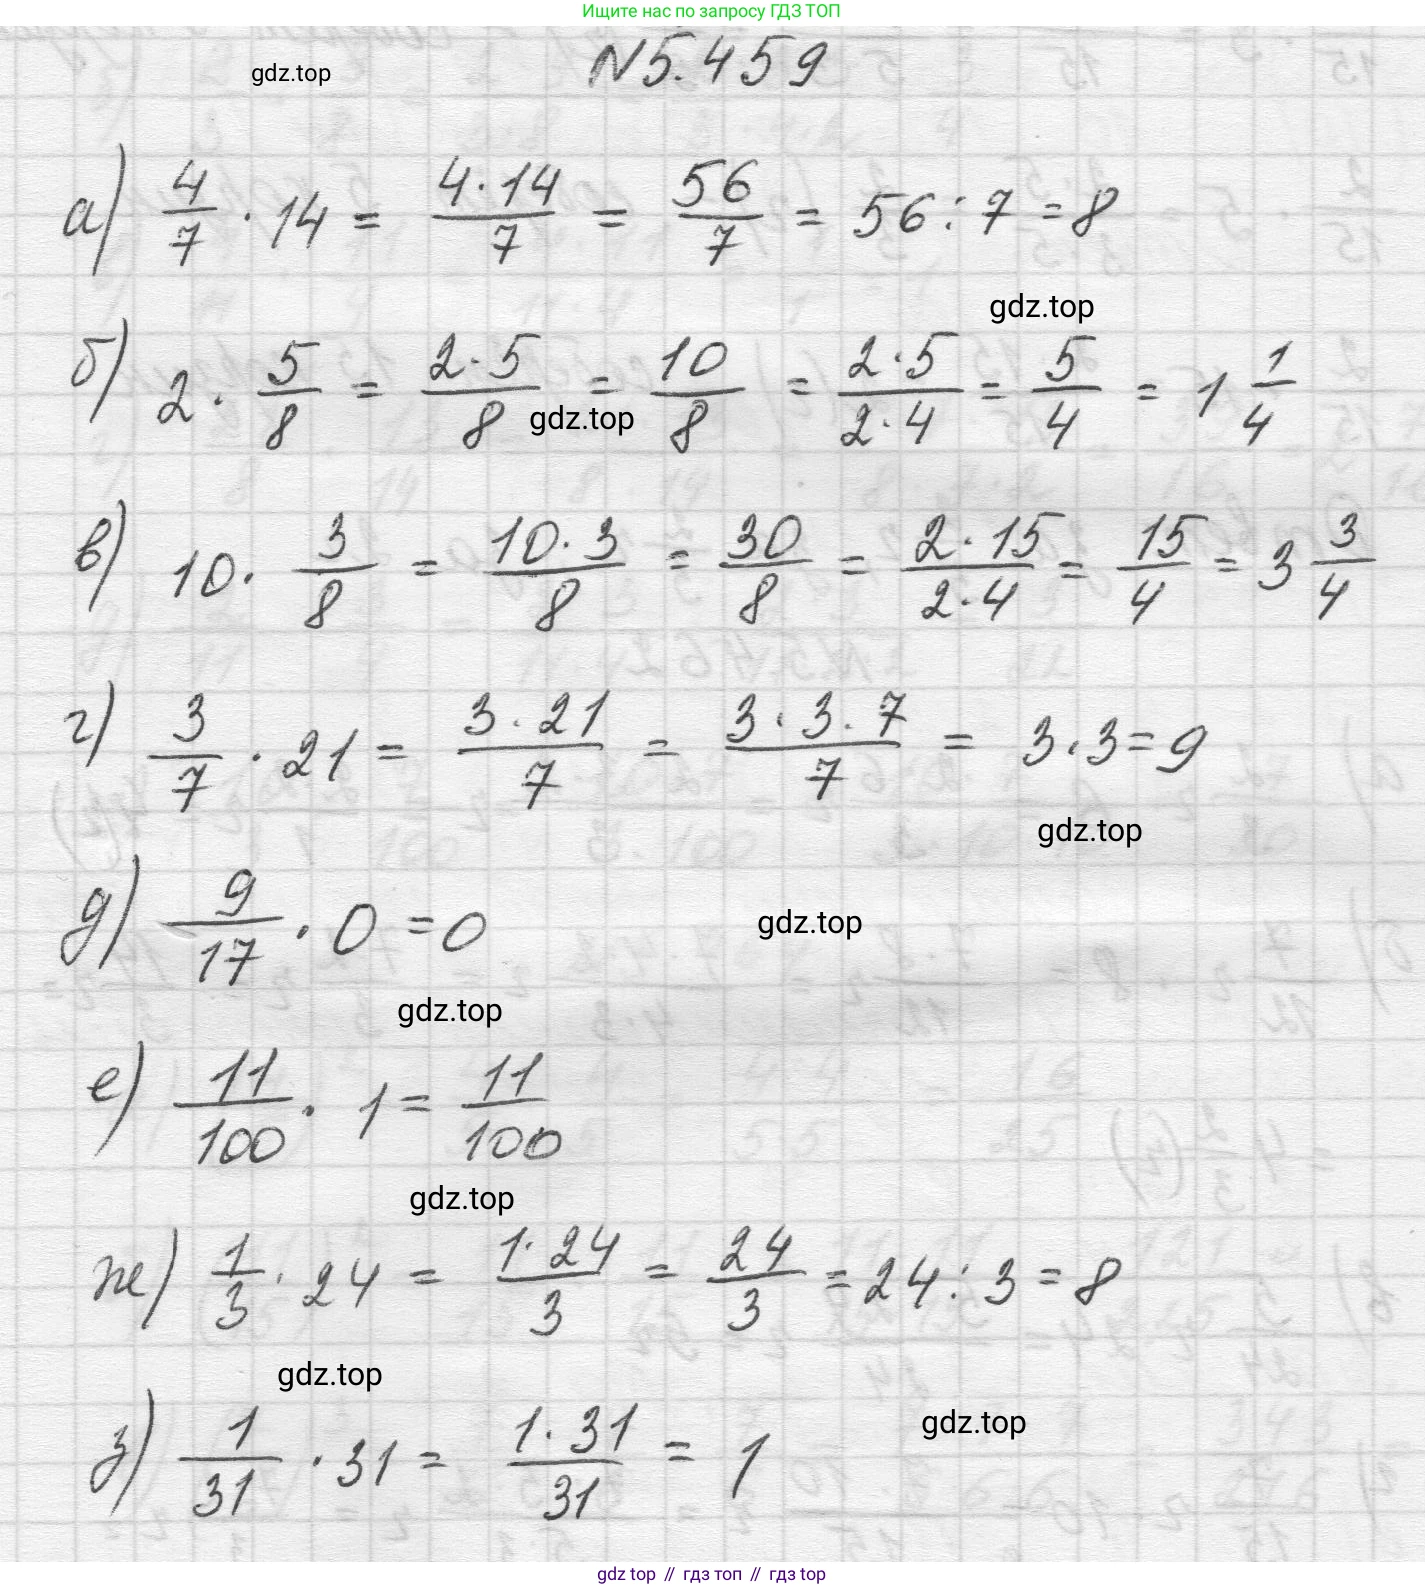 Ищите нас по запросу ГДЗ ТОП
N5.459
gdz.top
а) 4/7 · 14 = 4·14/7 = 56/7 = 56 : 7 = 8
gdz.top
б) 2 · 5/8 = 2·5/8 = 10/8 = 2·5/2·4 = 5/4 = 1 1/4
gdz.top
в) 10 · 3/8 = 10·3/8 = 30/8 = 2·15/2·4 = 15/4 = 3 3/4
г) 3/7 · 21 = 3·21/7 = 3·3·7/7 = 3·3 = 9
gdz.top
д) 9/17 · 0 = 0
gdz.top
gdz.top
е) 11/100 · 1 = 11/100
gdz.top
ж) 1/3 · 24 = 1·24/3 = 24/3 = 24 : 3 = 8
gdz.top
з) 1/31 · 31 = 1·31/31 = 1
gdz.top
gdz top // гдз топ // гдз top